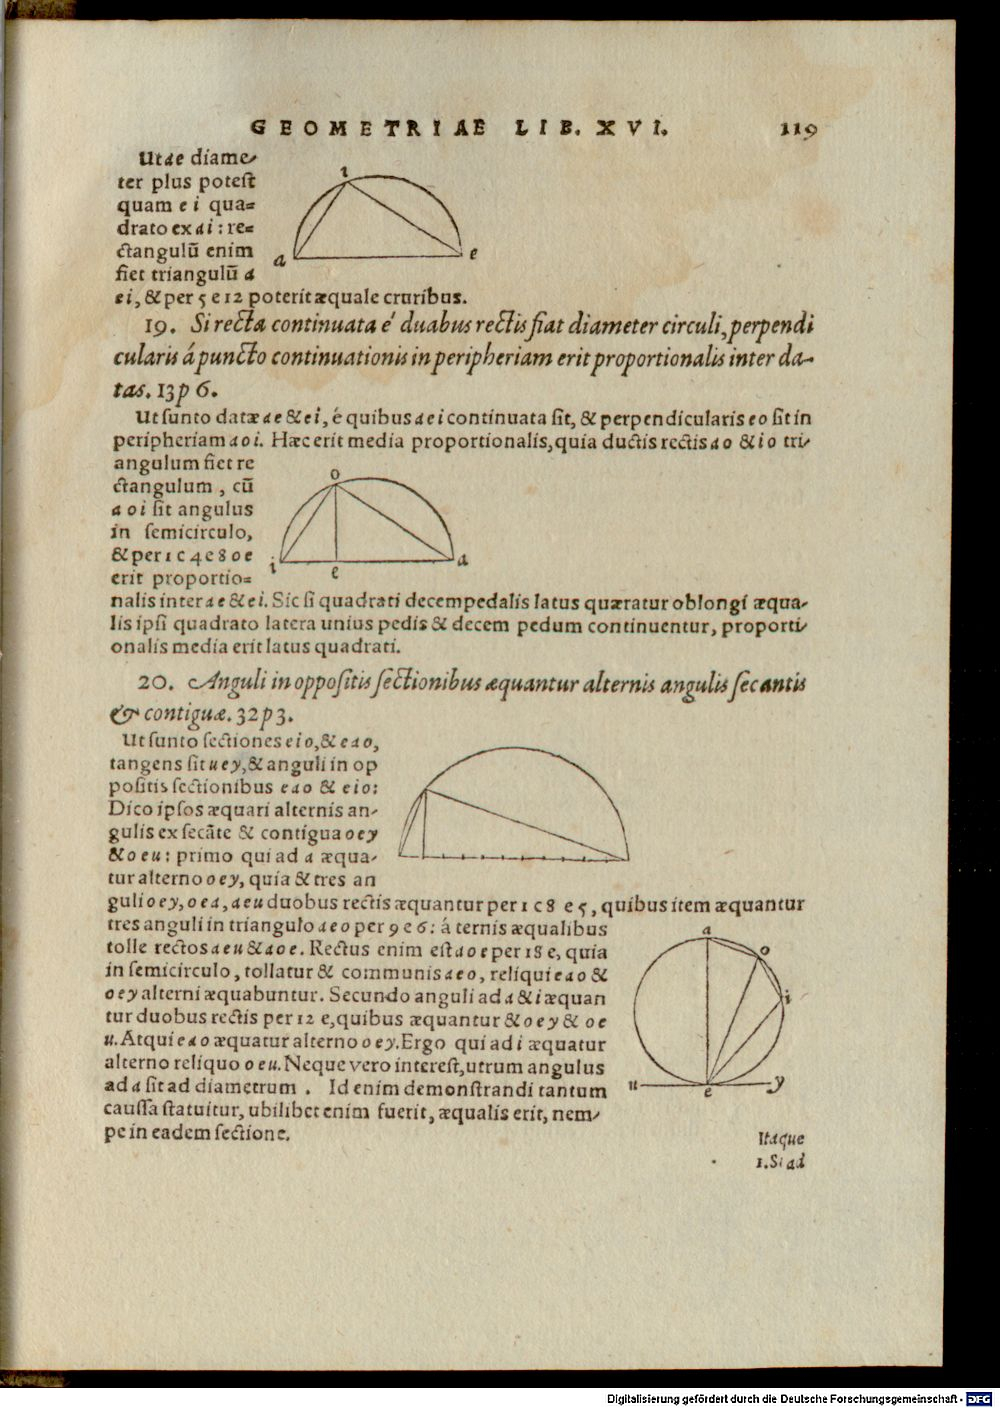 GEOMETRIAE LIB. XVI. 119
Ut ae diame-
ter plus potest
quam e i qua=
drato ex ai : re=
ctangulũ enim
fiet triangulũ a
ei, & per 5 e 12 poterit æquale cruribus.
a i e
19. Si recta continuata é duabus rectis fiat diameter circuli, perpendi
cularis á puncto continuationis in peripheriam erit proportionalis inter da-
tas. 13 p 6.
Ut sunto datæ ae & ei, é quibus aei continuata sit, & perpendicularis eo sit in
peripheriam aoi. Hæc erit media proportionalis, quia ductis rectis ao & io tri-
angulum fiet re
ctangulum, cũ
aoi sit angulus
in semicirculo,
& per 1 c 4 e 8 oe
erit proportio=
i o e a
nalis inter ae & ei. Sic si quadrati decempedalis latus quæratur oblongi æqua-
lis ipsi quadrato latera unius pedis & decem pedum continuentur, proporti-
onalis media erit latus quadrati.
20. Anguli in oppositis sectionibus æquantur alternis angulis secantis
& contiguæ. 32 p 3.
Ut sunto sectiones eio, & eao,
tangens sit uey, & anguli in op
positis sectionibus eao & eio:
Dico ipsos æquari alternis an-
gulis ex secãte & contigua oey
& oeu: primo qui ad a æqua-
tur alterno oey, quia & tres an
guli oey, oea, aeu duobus rectis æquantur per 1 c 8 e 5, quibus item æquantur
tres anguli in triangulo aeo per 9 e 6: á ternis æqualibus
tolle rectos aeu & aoe. Rectus enim est aoe per 18 e, quia
in semicirculo, tollatur & communis aeo, reliqui eao &
oey alterni æquabuntur. Secundo anguli ad a & i æquan
tur duobus rectis per 12 e, quibus æquantur & oey & oe
u. Atqui eao æquatur alterno oey. Ergo qui ad i æquatur
alterno reliquo oeu. Neque vero interest, utrum angulus
ad a sit ad diametrum. Id enim demonstrandi tantum
caussa statuitur, ubilibet enim fuerit, æqualis erit, nem-
pe in eadem sectione.
a o i u e y
Itaque
1. Si ad
Digitalisierung gefördert durch die Deutsche Forschungsgemeinschaft - DFG